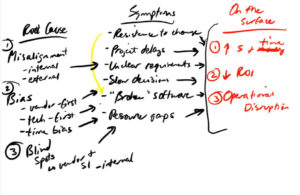 Root Cause
① Misalignment
- internal
- external
② Bias
- vendor-first
- tech-first
- time bias
③ Blind
Spots
vendor +
SI - internal
Symptoms
- Resistance to change
- Project delays
- Unclear requirements
- Slow decisions
- "Broken" software
- Resource gaps
On the
Surface
① ↑ $ + time
② ↓ ROI
③ Operational
Disruption